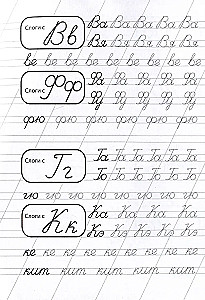 Слоги с Вв
Ва Ва Ва Ва Ва
Вя Вя Вя Вя Вя
ве ве ве ве ве ве ве
Слоги с Фф
Фа Фа Фа Фа Фа
Фу Фу Фу Фу Фу
фю фю фю фю фю фю
Слоги с Гг
Га Га Га Га Га
То То То То То
гю гю гю гю гю гю гю
Слоги с Кк
Ка Ка Ка Ка
Кэ Кэ Кэ Кэ Кэ
ке ке ке ке ке ке ке
кит кит кит кит кит